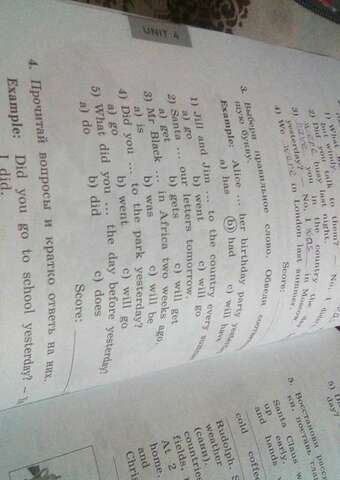 UNIT 4
talk to them? — No, I
busy last night.
you in the country the
yesterday? — No, I was in Moscow.
4) We were in London last summer.
Score:
3. Выбери правильное слово. Обведи
букву.
Example: Alice ... her birthday party
a) has b) had c) will have
1) Jill and Jim ... to the country every
a) go b) went c) will go
2) Santa ... our letters tomorrow.
a) get b) gets c) will get
3) Mr Black ... in Africa two weeks ago.
a) is b) was c) will be
4) Did you ... to the park yesterday?
a) go b) went c) will go
5) What did you ... the day before yesterday?
a) do b) did c) does
Score:
4. Прочитай вопросы и кратко ответь на них.
Example: Did you go to school yesterday? –
I did.
day?
5. Восстанови
Santa Claus
up early.
and hands
cold coffee
Rudolph.
weather
(cann)
fields,
countries
At 2
home.
and
Chri